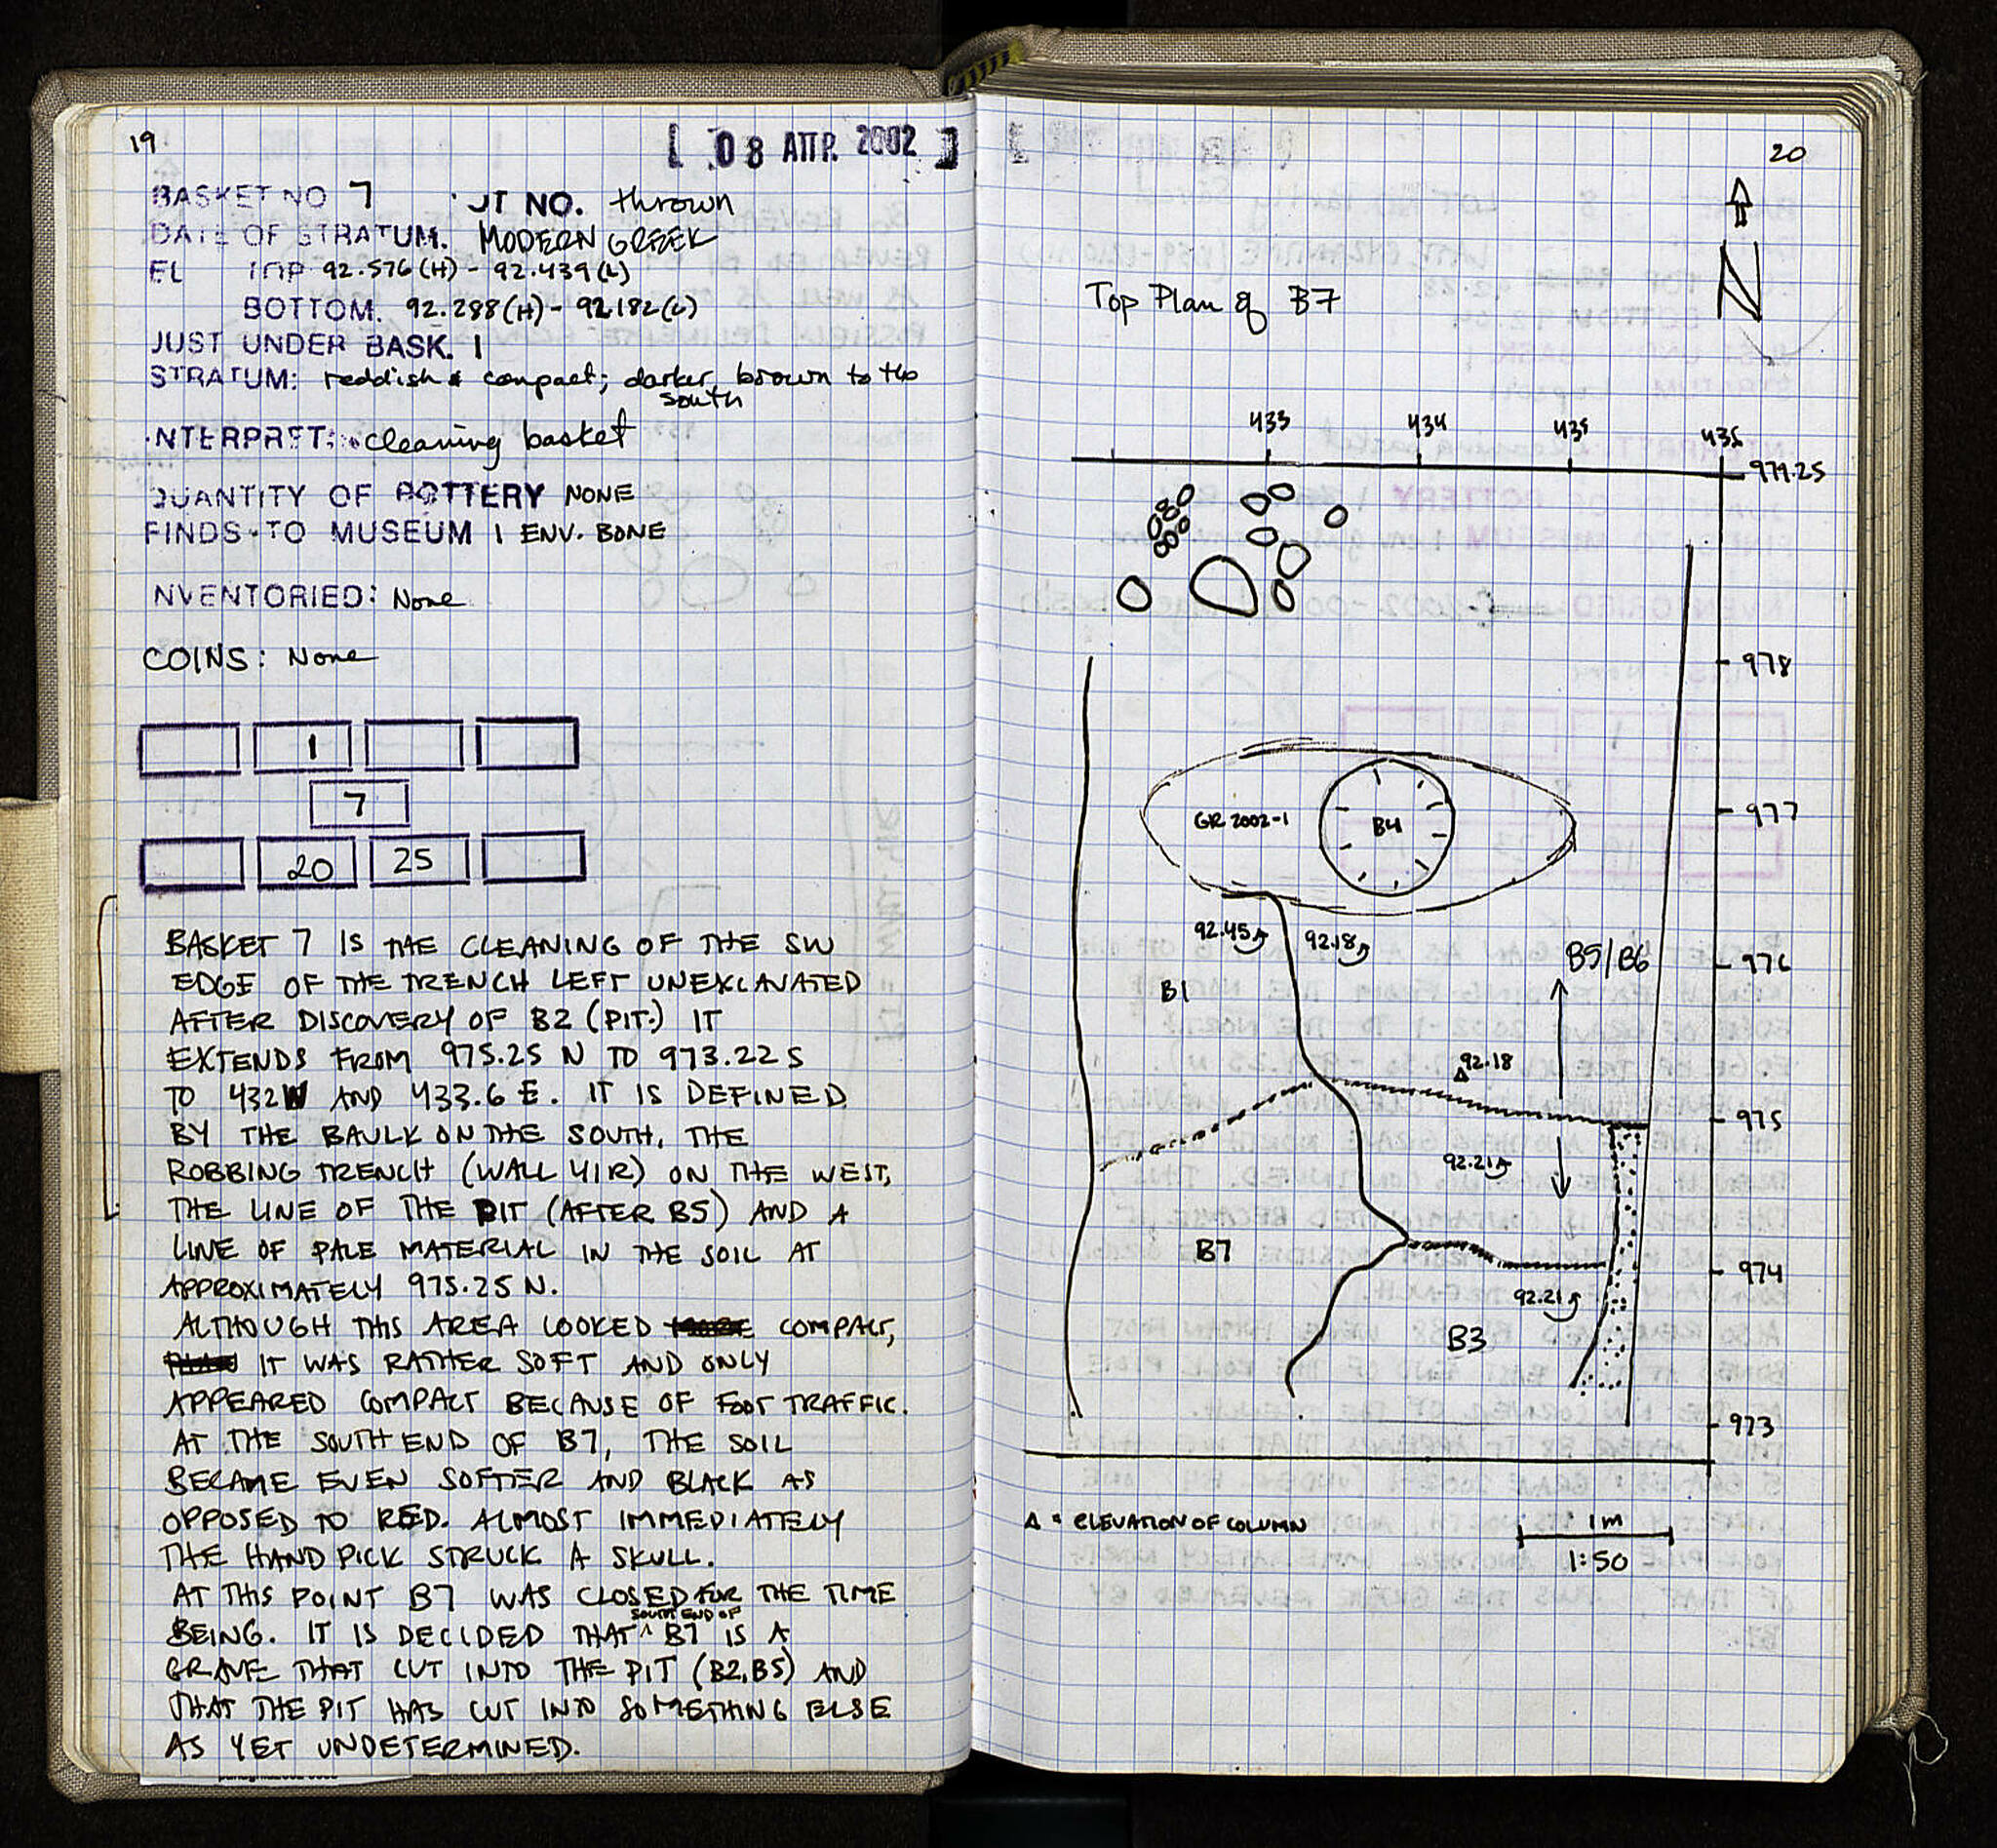 19
[ 08 ΑΠΡ. 2002 ]
BASKET NO 7 OT NO. thrown
DATE OF STRATUM. MODERN GREEK
EL TOP 92.576(H) - 92.439(L)
BOTTOM. 92.288(H) - 92.182(L)
JUST UNDER BASK. 1
STRATUM: reddish & compact; darker, brown to the
south
INTERPRET: cleaning basket
QUANTITY OF POTTERY NONE
FINDS TO MUSEUM 1 ENV. BONE
NVENTORIED: None
COINS: None
1
7
20 25
BASKET 7 IS THE CLEANING OF THE SW
EDGE OF THE TRENCH LEFT UNEXCAVATED
AFTER DISCOVERY OF B2 (PIT.) IT
EXTENDS FROM 975.25 N TO 973.22 S
TO 432 W AND 433.6 E. IT IS DEFINED
BY THE BAULK ON THE SOUTH, THE
ROBBING TRENCH (WALL 41R) ON THE WEST,
THE LINE OF THE PIT (AFTER B5) AND A
LINE OF PALE MATERIAL IN THE SOIL AT
APPROXIMATELY 975.25 N.
ALTHOUGH THIS AREA LOOKED COMPACT,
IT WAS RATHER SOFT AND ONLY
APPEARED COMPACT BECAUSE OF FOOT TRAFFIC.
AT THE SOUTH END OF B7, THE SOIL
BECAME EVEN SOFTER AND BLACK AS
OPPOSED TO RED. ALMOST IMMEDIATELY
THE HAND PICK STRUCK A SKULL.
AT THIS POINT B7 WAS CLOSED FOR THE TIME
BEING. IT IS DECIDED THAT ^ SOUTH END OF B7 IS A
GRAVE THAT CUT INTO THE PIT (B2, B5) AND
THAT THE PIT HAS CUT INTO SOMETHING ELSE
AS YET UNDETERMINED.
20
N
Top Plan of B7
433 434 435 436
979.25
978
977
GR 2002-1 B4
92.45 92.18
B5/B6
976
B1
92.18
975
92.21
B7
974
92.21
B3
973
Δ = ELEVATION OF COLUMN
1m
1:50